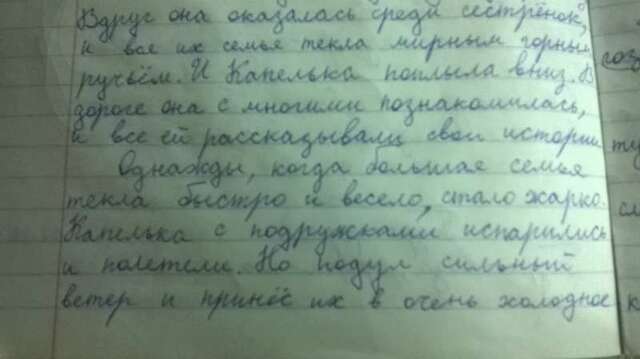 Вдруг она оказалась среди сестрёнок,
и все их семья текла мирным горным
ручьём. И Капелька поплыла вниз. В
дороге она с многими познакомилась,
и все ей рассказывали свои истории.
Однажды, когда большая семья
текла быстро и весело, стало жарко.
Капелька с подружками испарились
и полетели. Но подул сильный
ветер и принёс их в очень холодное